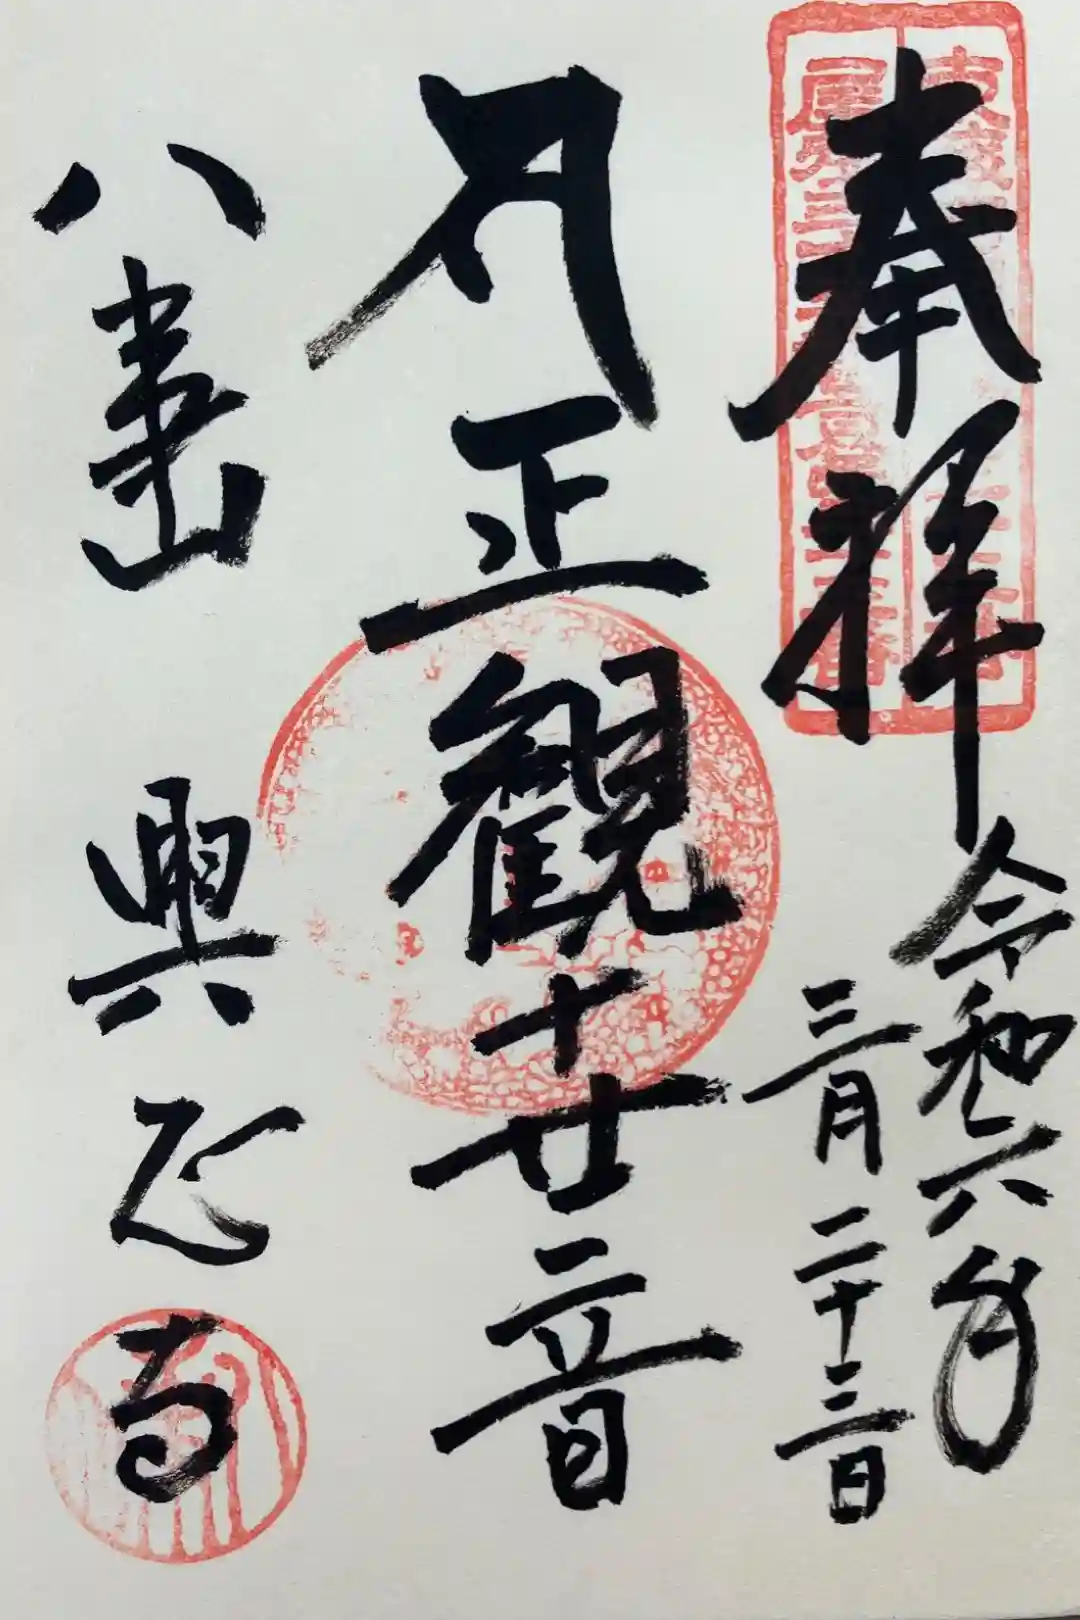 奉拝
令和六年
三月二十三日
正觀世音
八事山 興正寺